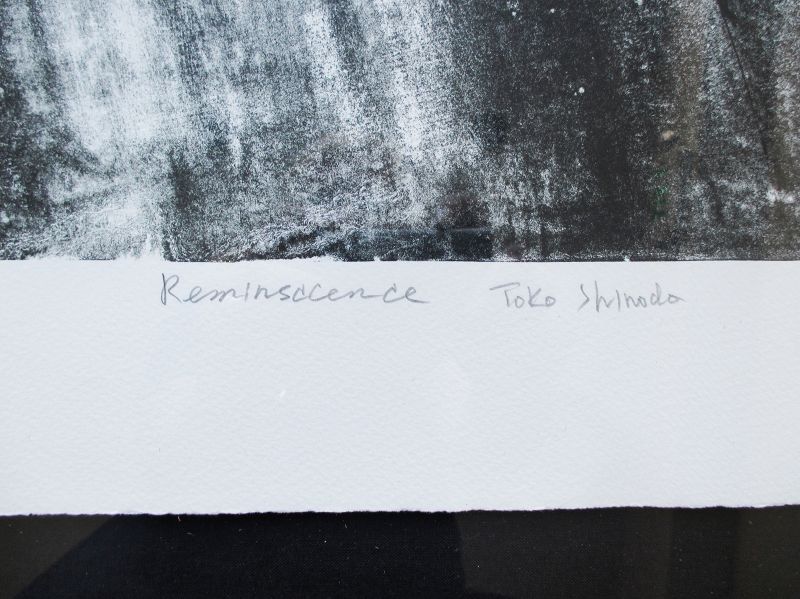 Reminscence Toko Shinoda